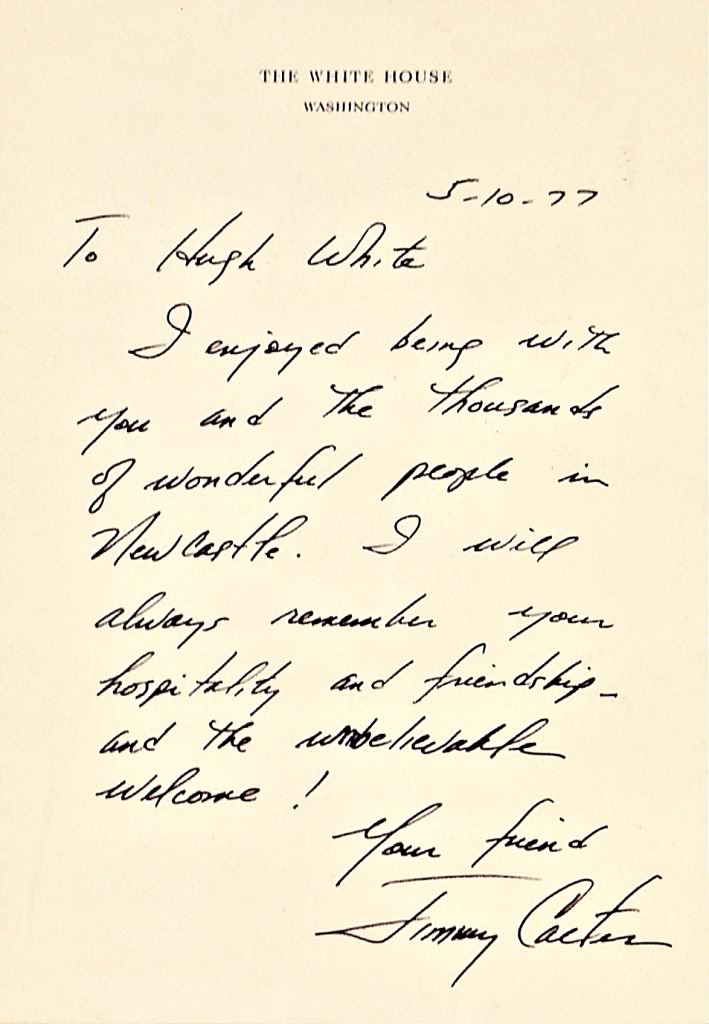 THE WHITE HOUSE
WASHINGTON
5-10-77
To Hugh White
I enjoyed being with
you and the thousands
of wonderful people in
Newcastle. I will
always remember your
hospitality and friendship -
and the unbelievable
welcome!
Your friend
Jimmy Carter